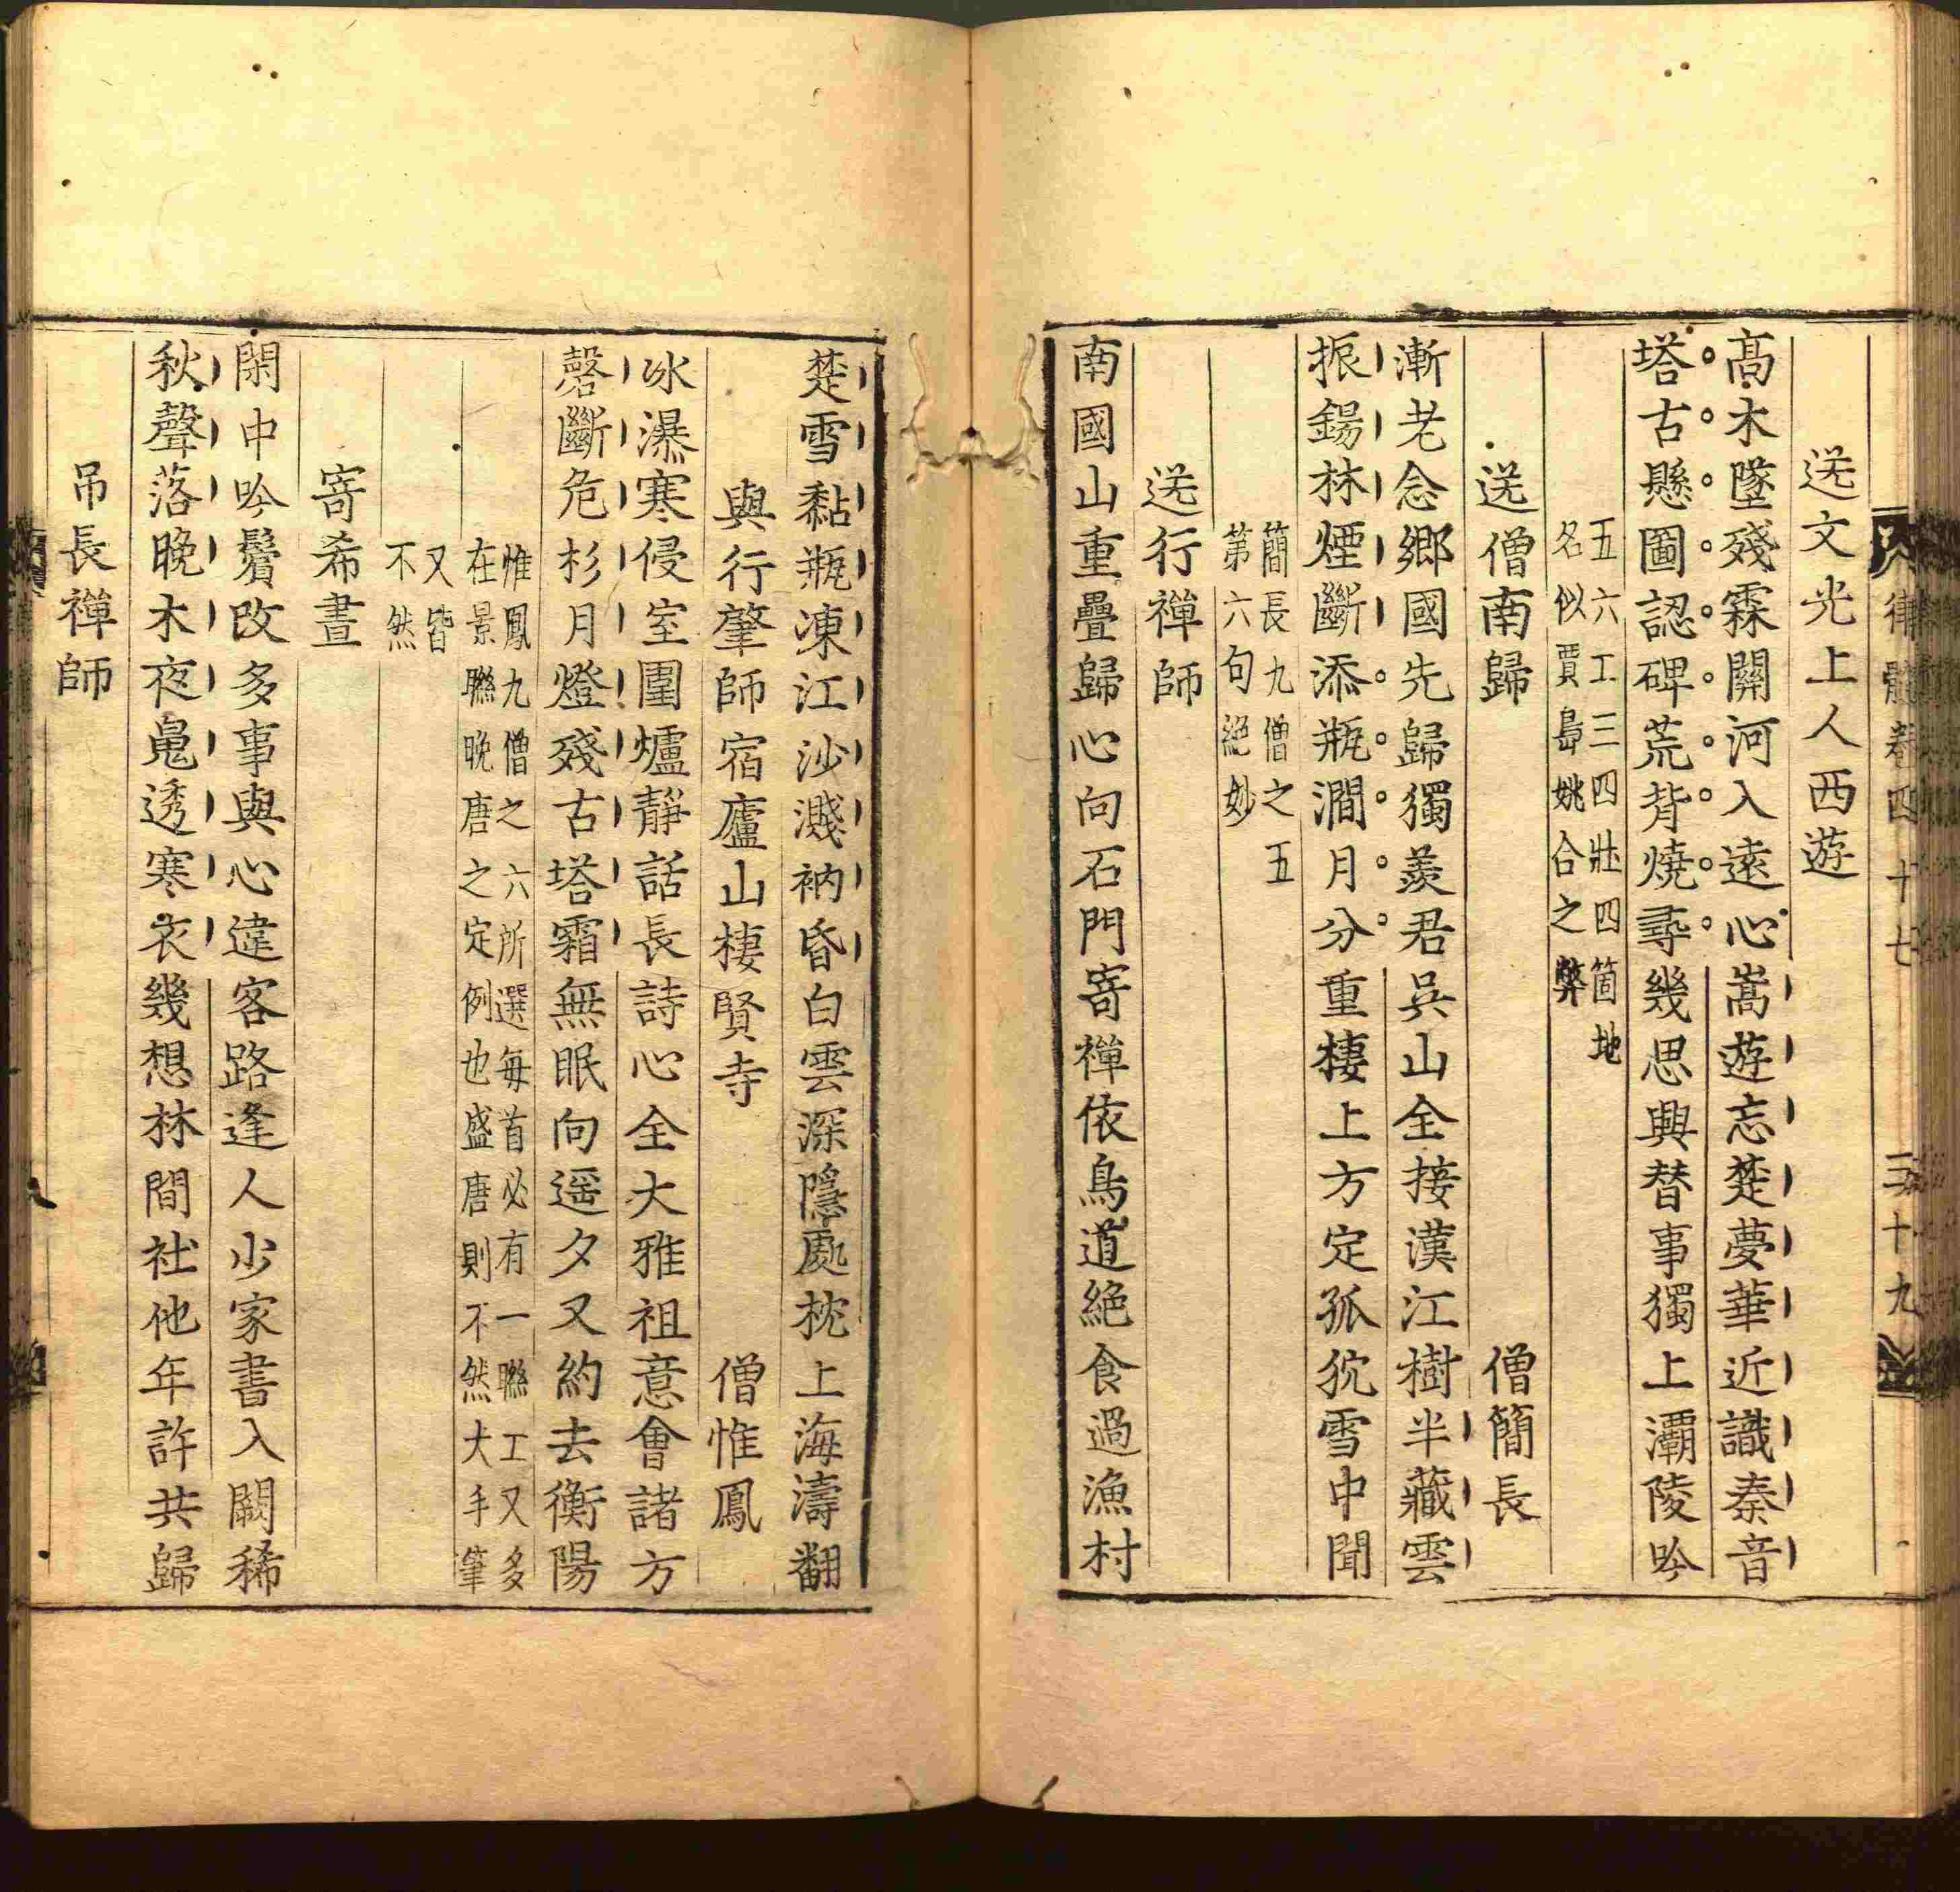 律髓卷四十七 三十九
送文光上人西遊
高木墜殘霖關河入遠心嵩遊忘楚夢華近識秦音
塔古懸圖認碑荒背燒尋幾思興替事獨上灞陵吟
五六工三四壯四箇地
名似賈島姚合之弊
送僧南歸 僧簡長
漸老念鄉國先歸獨羨君吳山全接漢江樹半藏雲
振錫林煙斷添瓶澗月分重棲上方定孤狖雪中聞
簡長九僧之五
第六句絕妙
送行禪師
南國山重疊歸心向石門寄禪依鳥道絕食過漁村
楚雪黏瓶凍江沙濺衲昏白雲深隱處枕上海濤翻
與行肇師宿廬山棲賢寺 僧惟鳳
冰瀑寒侵室圍爐靜話長詩心全大雅祖意會諸方
磬斷危杉月燈殘古塔霜無眠向遥夕又約去衡陽
惟鳳九僧之六所選每首必有一聯工又多
在景聯晚唐之定例也盛唐則不然大手筆
又皆
不然
寄希晝
閑中吟鬢改多事與心違客路逢人少家書入關稀
秋聲落晚木夜鬼透寒衣幾想林間社他年許共歸
吊長禪師